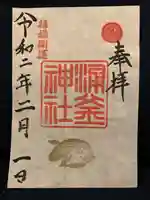 奉拝
涌釜
神社
令和二年二月一日